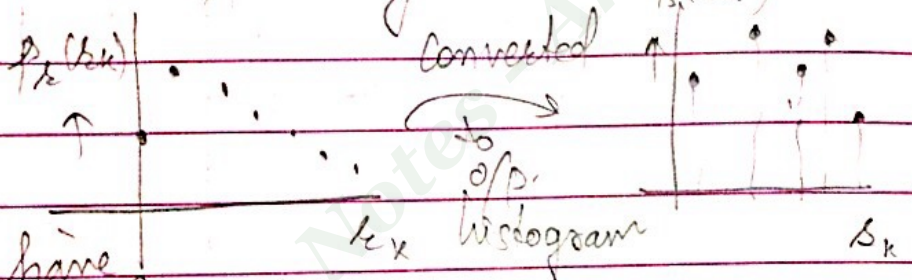 p_r(r_k)
Converted
to
o/p.
histogram
r_k
s_k
have
Notes